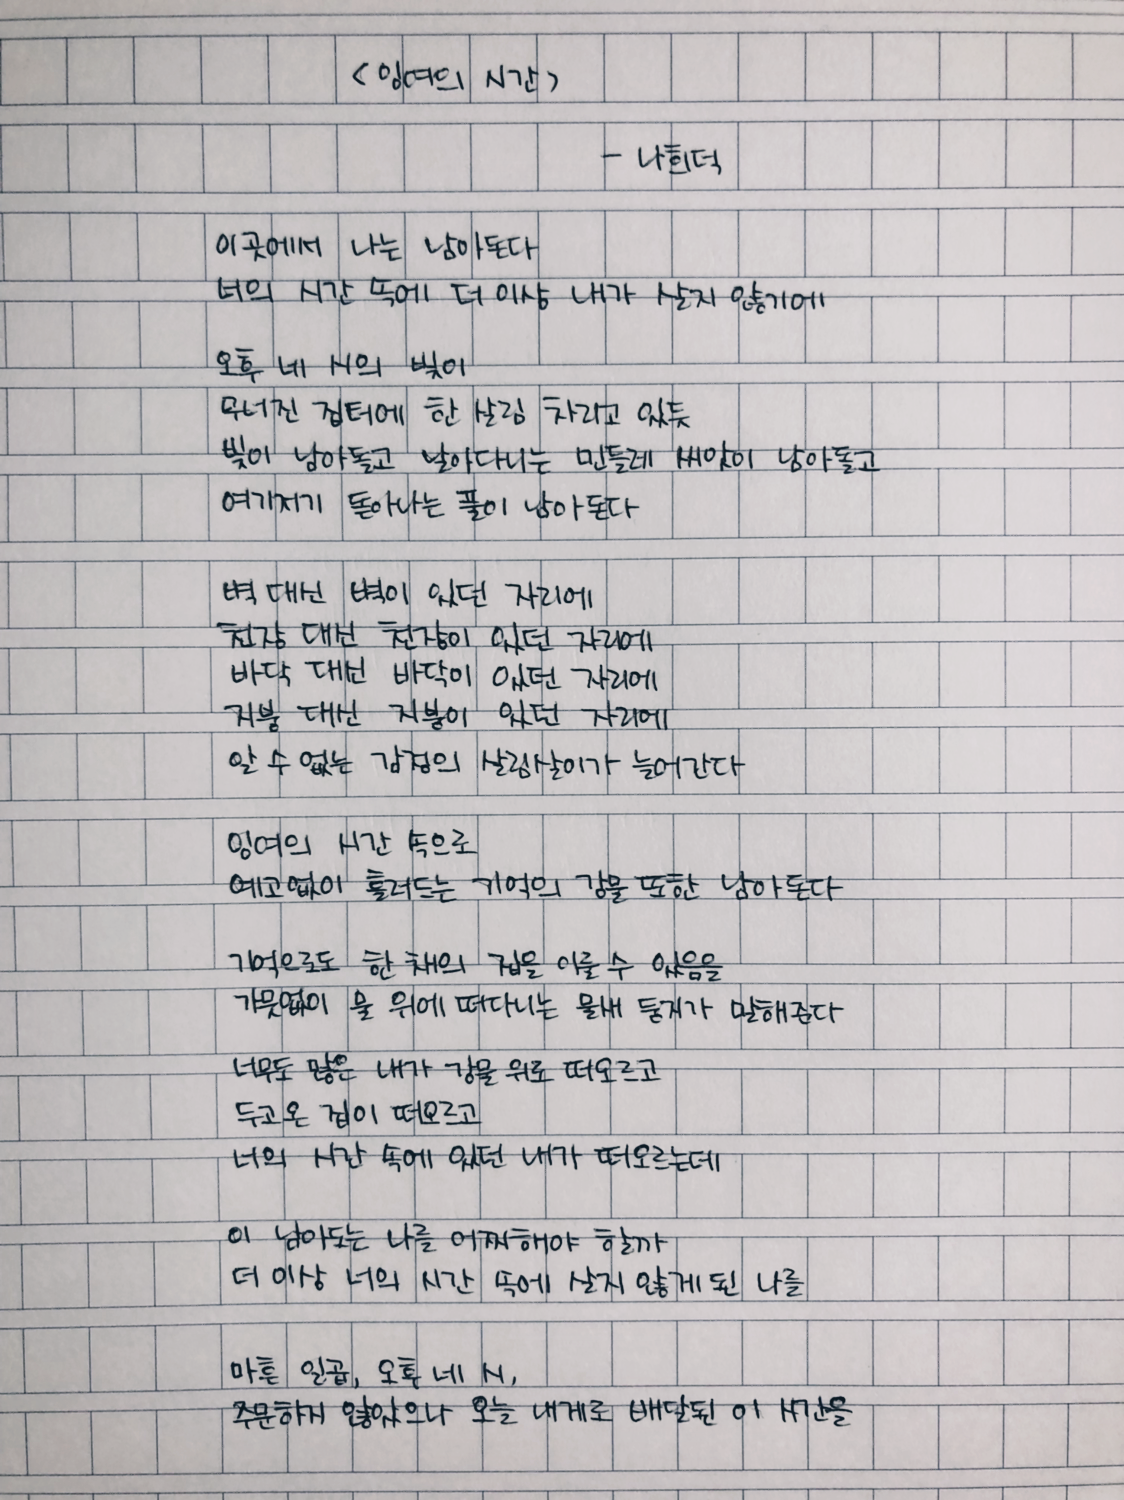 <잉여의 시간>
- 나희덕
이곳에서 나는 남아돈다
너의 시간 속에 더 이상 내가 살지 않기에
오후 네 시의 빛이
무너진 집터에 한 살림 차리고 있듯
빛이 남아돌고 날아다니는 민들레 씨앗이 남아돌고
여기저기 돋아나는 풀이 남아돈다
벽 대신 벽이 있던 자리에
천장 대신 천장이 있던 자리에
바닥 대신 바닥이 있던 자리에
지붕 대신 지붕이 있던 자리에
알 수 없는 감정의 살림살이가 늘어간다
잉여의 시간 속으로
예고없이 흘러드는 기억의 강물 또한 남아돈다
기억으로도 한 채의 집을 이룰 수 있음을
가뭇없이 물 위에 떠다니는 물새 둥지가 말해준다
너무도 많은 내가 강물 위로 떠오르고
두고온 집이 떠오르고
너의 시간 속에 있던 내가 떠오르는데
이 남아도는 나를 어찌해야 할까
더 이상 너의 시간 속에 살지 않게 된 나를
마흔 일곱, 오후 네 시,
주문하지 않았으나 오늘 내게로 배달된 이 시간을